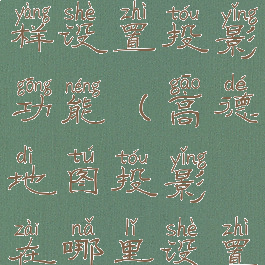 yàng shè zhì tóu yǐng
样设置投影
gōng néng gāo dé
功能（高德
dì tú tóu yǐng
地图投影
zài nǎ lǐ shè zhì
在哪里设置